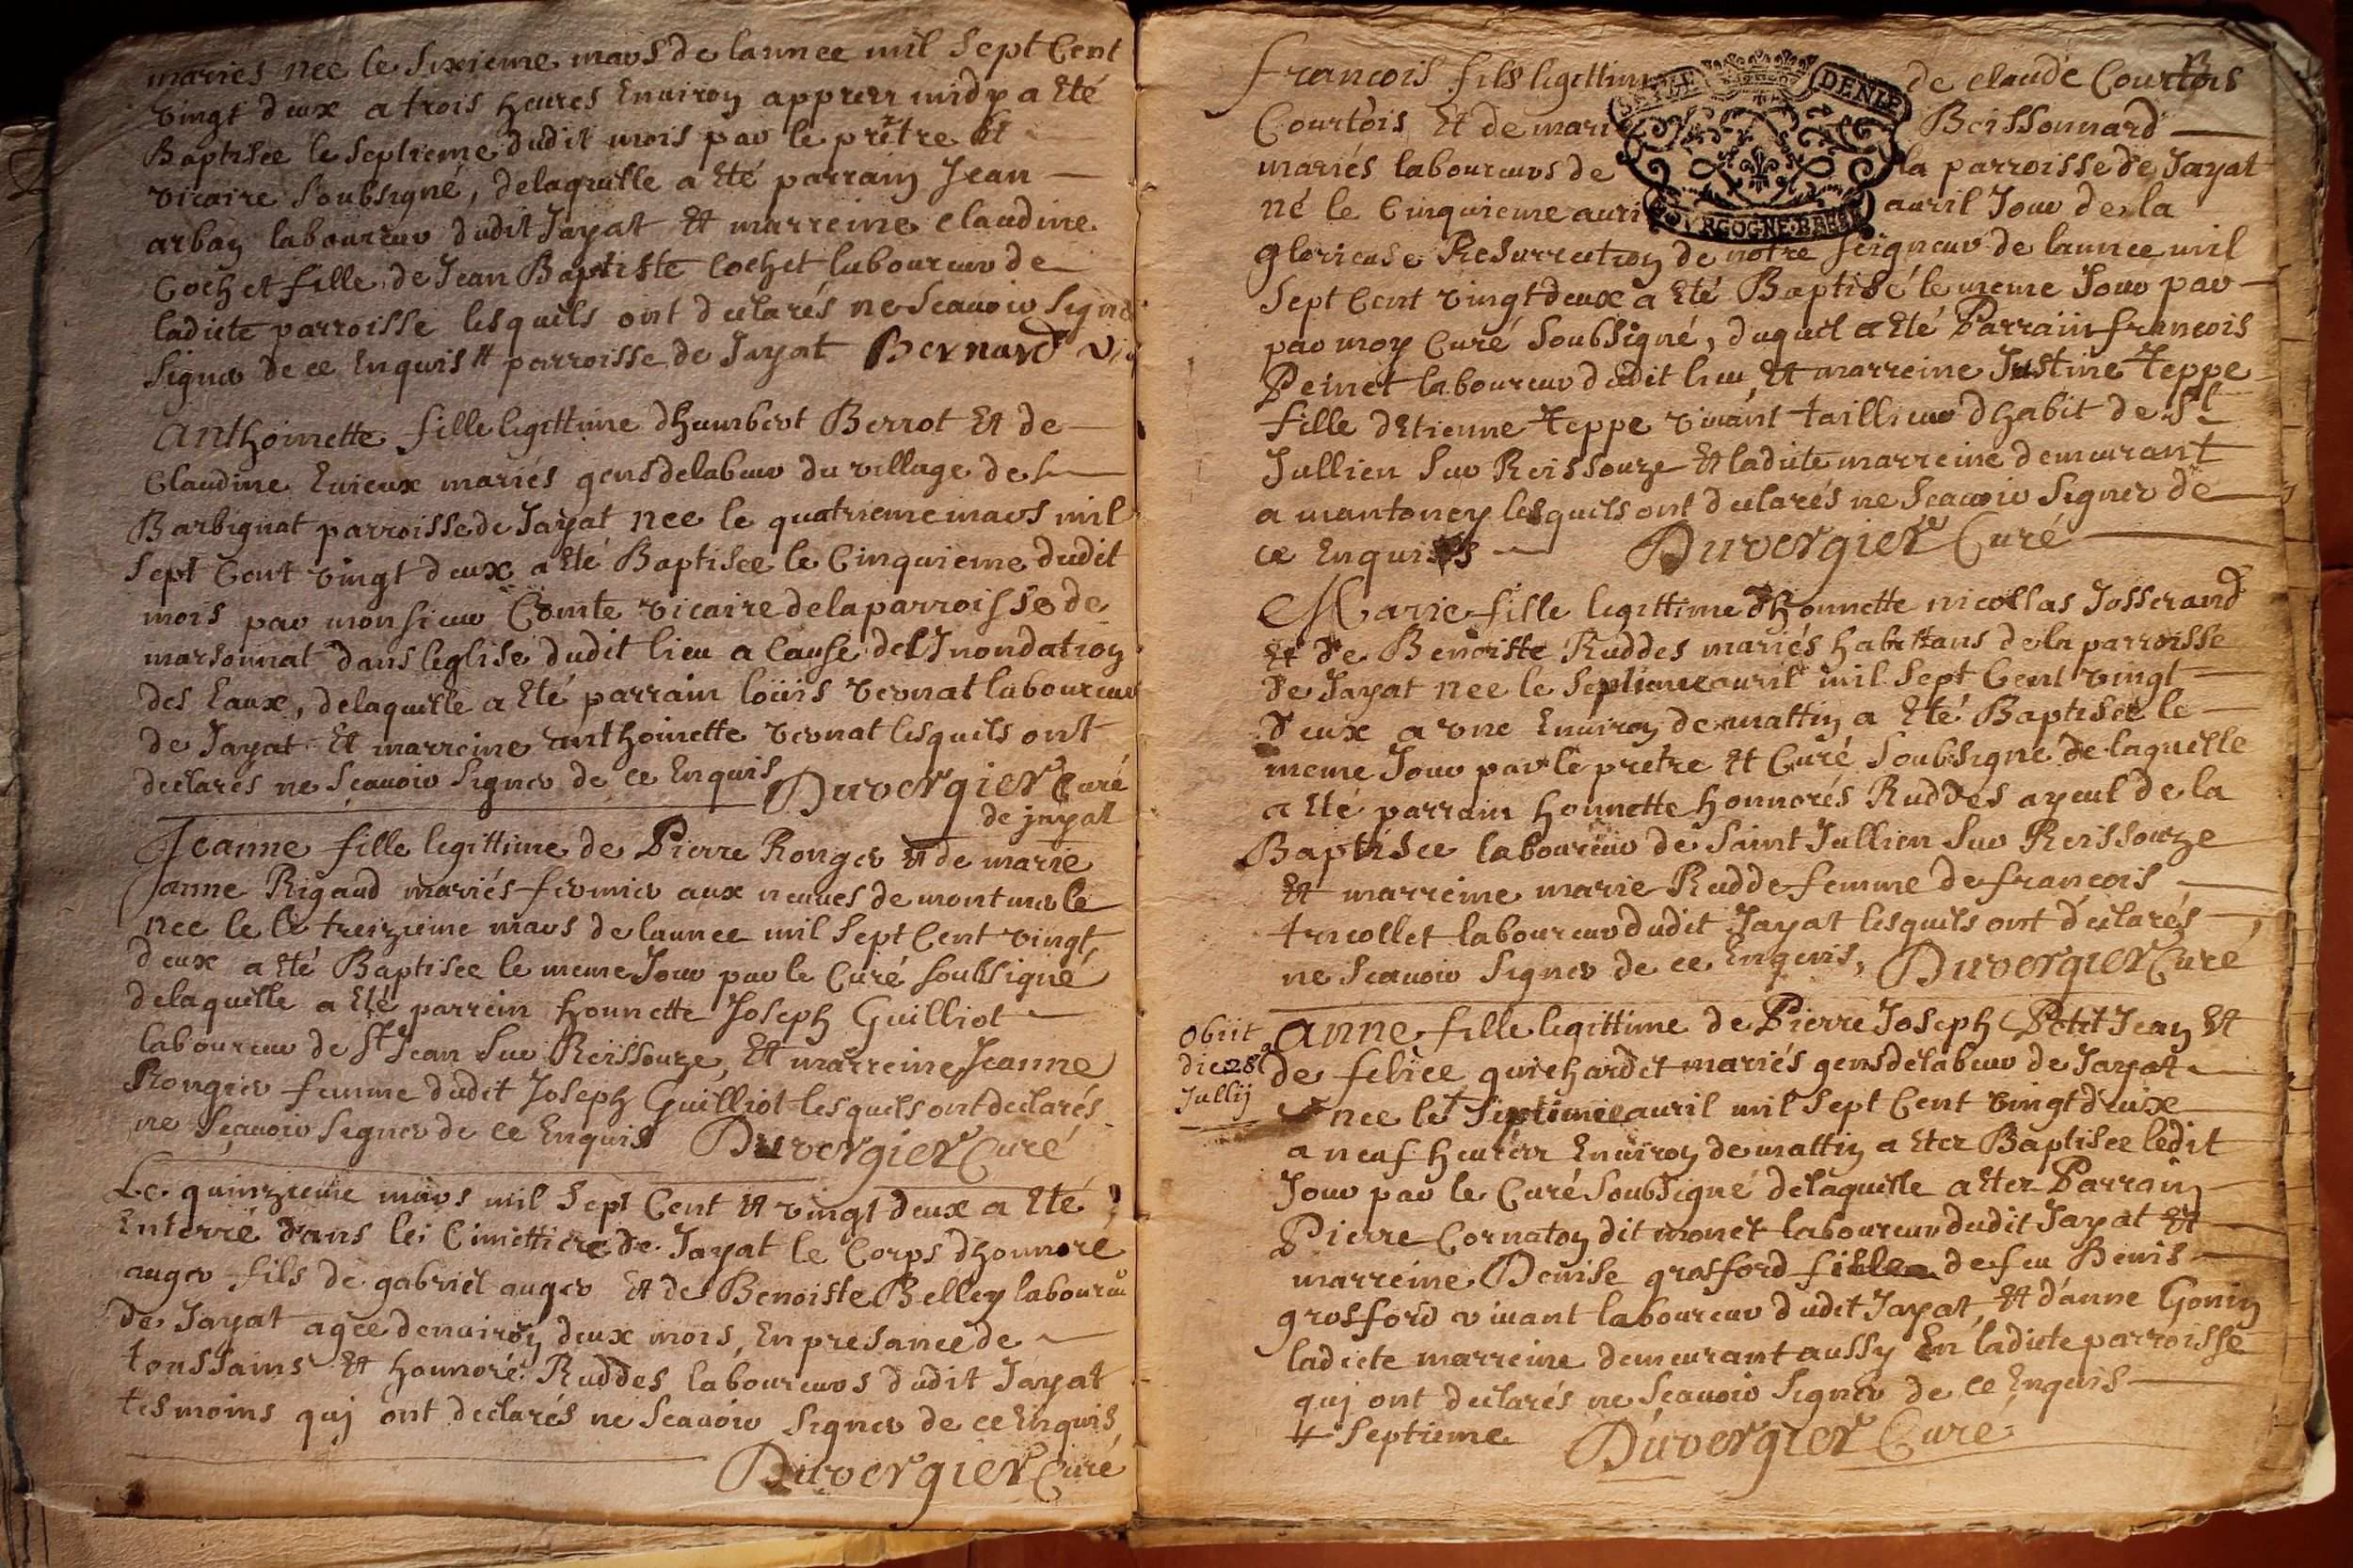 mariés nee le sixieme mars de lannee mil sept Cent
vingt deux a trois heures Environ apprers midy a Eté
Baptisée le septieme dudit mois par le prêtre Et
vicaire soubsigné, delaquelle a Eté parrain Jean
arban laboureur dudit Jayat Et marreine claudine
Cochet fille de Jean Baptiste Cochet laboureur de
ladicte parroisse lesquels ont declarés ne scauoir signer
signer de ce Enquis # parroisse de Jayat Bernard vic
Anthoinette fille legittime dhumbert Berrot Et de
Claudine Enieux mariés gens de labeur du village de
Barbignat parroisse de Jayat nee le quatrieme mars mil
sept Cent vingt deux a Eté Baptisee le Cinquieme dudit
mois par monsieur Comte vicaire de la parroisse de
marsonnat dans leglise dudit lieu a Cause de l'Inondation
des Eaux, delaquelle a Eté parrain loüis vernat laboureur
de Jayat Et marreine anthoinette vernat lesquels ont
declarés ne sçauoir signer de ce Enquis Duvergier Curé
de jayat
Jeanne fille legittime de Pierre Ronger Et de marie
Janne Rigaud mariés fermier aux neuues de montmerle
nee le le treizieme mars de lannee mil sept Cent vingt
deux a Eté Baptisee le meme Jour par le Curé soubsigné
delaquelle a Eté parrein honnette Joseph Guilliot
laboureur de St Jean sur Reissouze, Et marreine Jeanne
Rongier femme dudit Joseph Guilliot lesquels ont declarés
ne sçauoir signer de ce Enquis Duvergier Curé
Le quinzieme mars mil sept Cent Et vingt deux a Eté
Enterré dans le Cimettiere de Jayat le Corps dhonnoré
auger fils de gabriel auger Et de Benoiste Belley laboureur
de Jayat agee denuiron deux mois, En presance de
toussains Et honnoré Ruddes laboureurs dudit Jayat
tesmoins quj ont declarés ne scauoir signer de ce Enquis,
Duvergier Curé
francois fils legittim de claude Courtois
Courtois Et de mari Boissonnard
mariés laboureurs de la parroisse de Jayat
né le Cinquieme auri auril Jour de la
glorieuse Resurrection de notre seigneur de lannee mil
sept Cent vingt deux a Eté Baptisé le meme Jour par
par moy Curé soubsigné, duquel a Eté Parrain francois
Peinet laboureur dudit lieu, Et marreine Justine Teppe
fille dEtienne Teppe viuant taillieur dhabit de St
Jullien sur Reissouze Et ladite marreine demeurant
a mantoney lesquels ont declarés ne scauoir signer de
ce Enquis Duvergier Curé
Marie fille legittime dhonnette nicollas Josserand
Et de Benoiste Ruddes mariés habittans de la parroisse
de Jayat nee le septieme auril mil sept Cent vingt
deux a vne Enuiron de mattin a Eté Baptisée le
meme Jour par le pretre Et Curé soubsigné delaquelle
a Eté parrain honnette honnorés Ruddes ayeul de la
Baptisee laboureur de saint Jullien sur Reissouze
Et marreine marie Rudde femme de francois
tricollet laboureur dudit Jayat lesquels ont declarés
ne scauoir signer de ce Enquis, Duvergier Curé
obiit
die 28a
Jullij
anne fille legittime de Pierre Joseph Petit Jean Et
de felice guichardet mariés gens de labeur de Jayat
nee le # septimee auril mil sept Cent vingt deux
a neuf heurerr Enuiron de mattin a Eter Baptisee ledit
Jour par le Curé soubsigné delaquelle a Eter Parrain
Pierre Cornaton dit monet laboureur dudit Jayat Et
marreine Denise grosford fille de feu Denis
grosford viuant laboureur dudit Jayat, Et d'anne Gonin
ladicte marreine demeurant aussy En ladicte parroisse
quj ont declarés ne scauoir signer de ce Enquis
# septieme Duvergier Curé